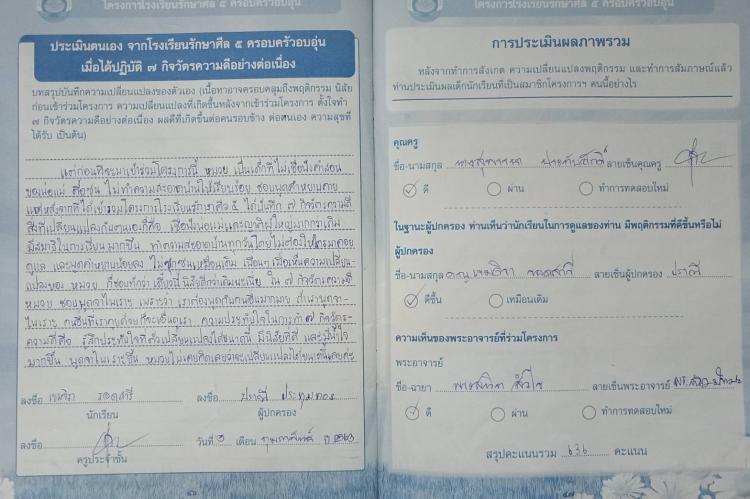 โครงการโรงเรียนรักษาศีล ๕ ครอบครัวอบอุ่น
ประเมินตนเอง จากโรงเรียนรักษาศีล ๕ ครอบครัวอบอุ่น
เมื่อได้ปฏิบัติ ๗ กิจวัตรความดีอย่างต่อเนื่อง
บทสรุปบันทึกความเปลี่ยนแปลงของตัวเอง (เนื้อหาอาจครอบคลุมถึงพฤติกรรม นิสัย
ก่อนเข้าร่วมโครงการ ความเปลี่ยนแปลงที่เกิดขึ้นหลังจากเข้าร่วมโครงการ ตั้งใจทำ
๗ กิจวัตรความดีอย่างต่อเนื่อง ผลดีที่เกิดขึ้นต่อคนรอบข้าง ต่อตนเอง ความสุขที่
ได้รับ เป็นต้น)
แต่ก่อนที่จะมาเข้าร่วมโครงการนี้ หมวย เป็นเด็กที่ไม่เชื่อฟังคำสอน
ของพ่อแม่ ดื้อซน ไม่ทำความสะอาดบ้านให้เรียบร้อย ชอบพูดคำหยาบคาย
แต่หลังจากที่ได้เข้าร่วมโครงการโรงเรียนรักษาศีล ๕ ได้บันทึก ๗ กิจวัตรความดี
สิ่งที่เปลี่ยนแปลงกับตนเองก็คือ เชื่อฟังพ่อแม่และญาติผู้ใหญ่มากกว่าเดิม
มีสมาธิในการเรียนมากขึ้น ทำความสะอาดบ้านทุกวันโดยไม่ต้องให้ใครมาคอย
ดูแล และพูดคำหยาบน้อยลง ไม่ซุกซนเหมือนเดิม เพื่อนๆ เมื่อเห็นความเปลี่ยน-
แปลงของ หมวย ก็ชอบทักว่า เดี๋ยวนี้นิสัยดีกว่าเดิมนะเนี่ย ใน ๗ กิจวัตรความดี
หมวย ชอบพูดจาไพเราะ เพราะว่า เราต้องพูดกับคนอื่นมากมาย ถ้าเราพูดจา-
ไพเราะ คนอื่นที่เราคุยด้วยก็จะเอ็นดูเรา ความประทับใจในการทำ ๗ กิจวัตร-
ความดีคือ รู้สึกประทับใจที่ตัวเปลี่ยนแปลงได้ขนาดนี้ มีนิสัยที่ดี และมีน้ำใจ
มากขึ้น พูดจาไพเราะขึ้น หมวยไม่เคยคิดเลยว่าจะเปลี่ยนแปลงได้ขนาดนี้เลยค่ะ
ลงชื่อ ลงชื่อ ปราณี ประทุมทอง
นักเรียน ผู้ปกครอง
ลงชื่อ วันที่ ๖ เดือน กุมภาพันธ์ ปี
ครูประจำชั้น
โครงการโรงเรียนรักษาศีล ๕ ครอบครัวอบอุ่น
การประเมินผลภาพรวม
หลังจากทำการสังเกต ความเปลี่ยนแปลงพฤติกรรม และทำการสัมภาษณ์แล้ว
ท่านประเมินผลเด็กนักเรียนที่เป็นสมาชิกโครงการฯ คนนี้อย่างไร
คุณครู
ชื่อ-นามสกุล ลายเซ็นคุณครู
ดี ผ่าน ทำการทดสอบใหม่
ในฐานะผู้ปกครอง ท่านเห็นว่านักเรียนในการดูแลของท่าน มีพฤติกรรมที่ดีขึ้นหรือไม่
ผู้ปกครอง
ชื่อ-นามสกุล ลายเซ็นผู้ปกครอง ปราณี
ดีขึ้น เหมือนเดิม
ความเห็นของพระอาจารย์ที่ร่วมโครงการ
พระอาจารย์
ชื่อ-ฉายา ลายเซ็นพระอาจารย์
ดี ผ่าน ทำการทดสอบใหม่
สรุปคะแนนรวม 636 คะแนน